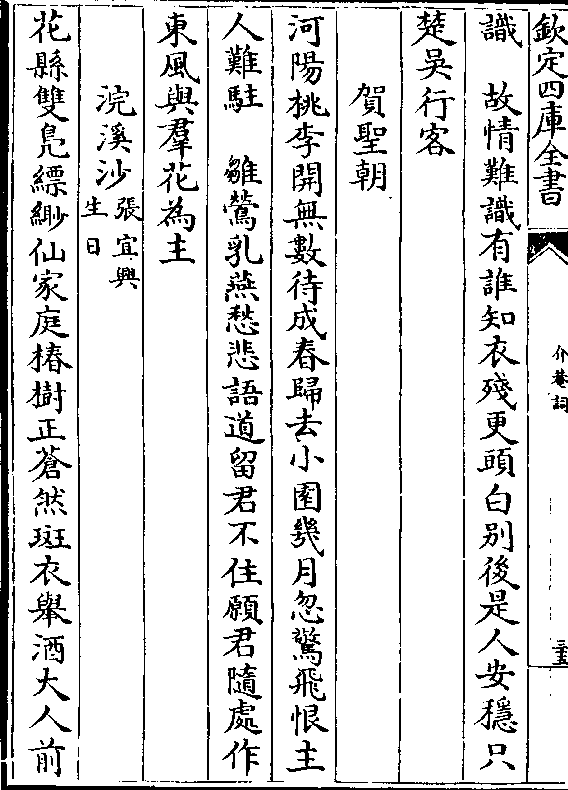 欽定四庫全書
介菴詞
三五
識　故情難識有誰知衣殘更頭白別後是人安穩只
楚吳行客
賀聖朝
河陽桃李開無數待成春歸去小園幾月忽驚飛恨主
人難駐　雛鶯乳燕愁悲語道留君不住願君隨處作
東風與羣花為主
浣溪沙張宜興生日
花縣雙鳧縹緲仙家庭椿樹正蒼然斑衣舉酒大人前